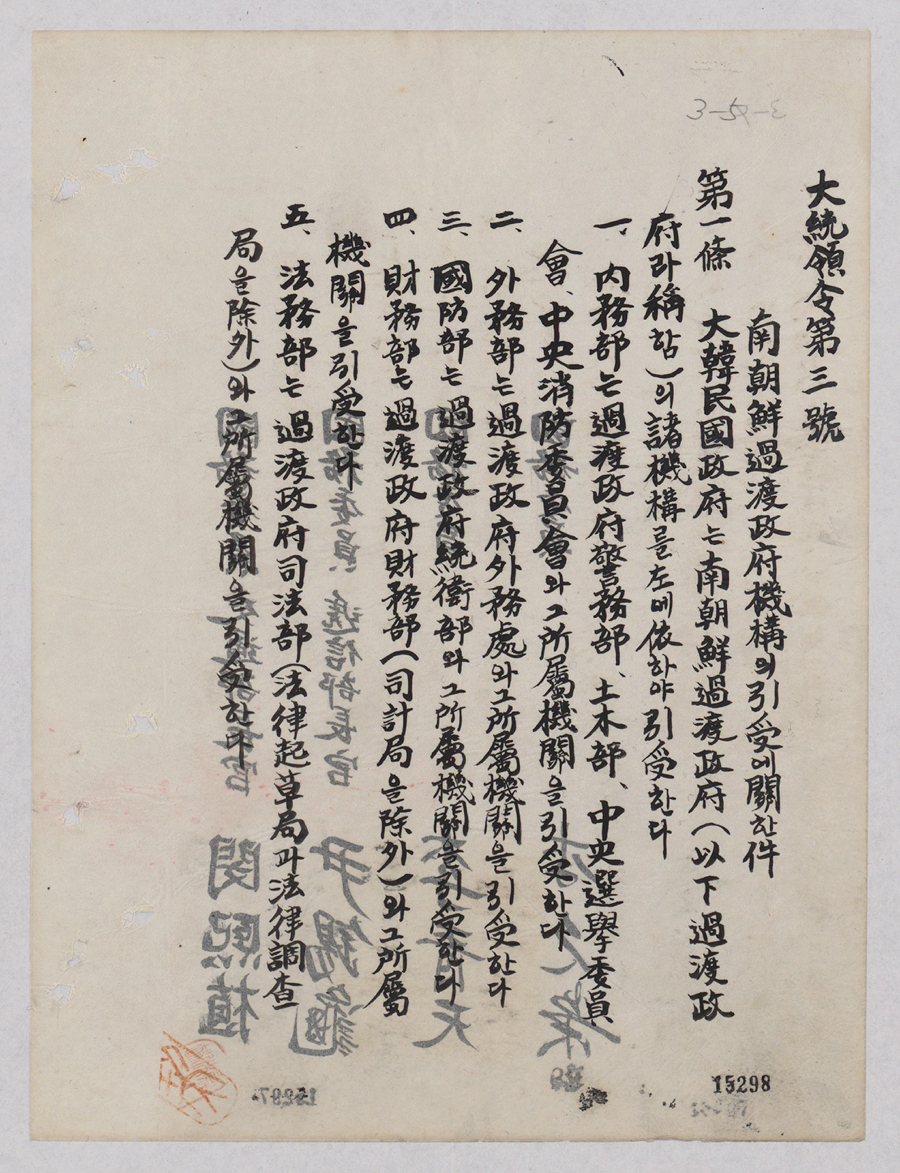 3-5-3
大統領令第三號
南朝鮮過渡政府機構의引受에關한件
第一條 大韓民國政府는南朝鮮過渡政府(以下過渡政
府라稱함)의諸機構를左에依하야引受한다
一、內務部는過渡政府警務部、土木部、中央選擧委員
會、中央消防委員會와그所屬機關을引受한다
二、外務部는過渡政府外務處와그所屬機關을引受한다
三、國防部는過渡政府統衛部와그所屬機關을引受한다
四、財務部는過渡政府財務部(司計局을除外)와그所屬
機關을引受한다
五、法務部는過渡政府司法部(法律起草局과法律調査
局을除外)와그所屬機關을引受한다
15298
國務委員 遞信部長官 尹錫龜
閔熙植
15297